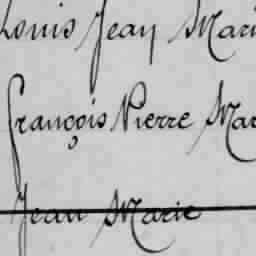 Louis Jean Mari
François Pierre Mar
Jean Marie